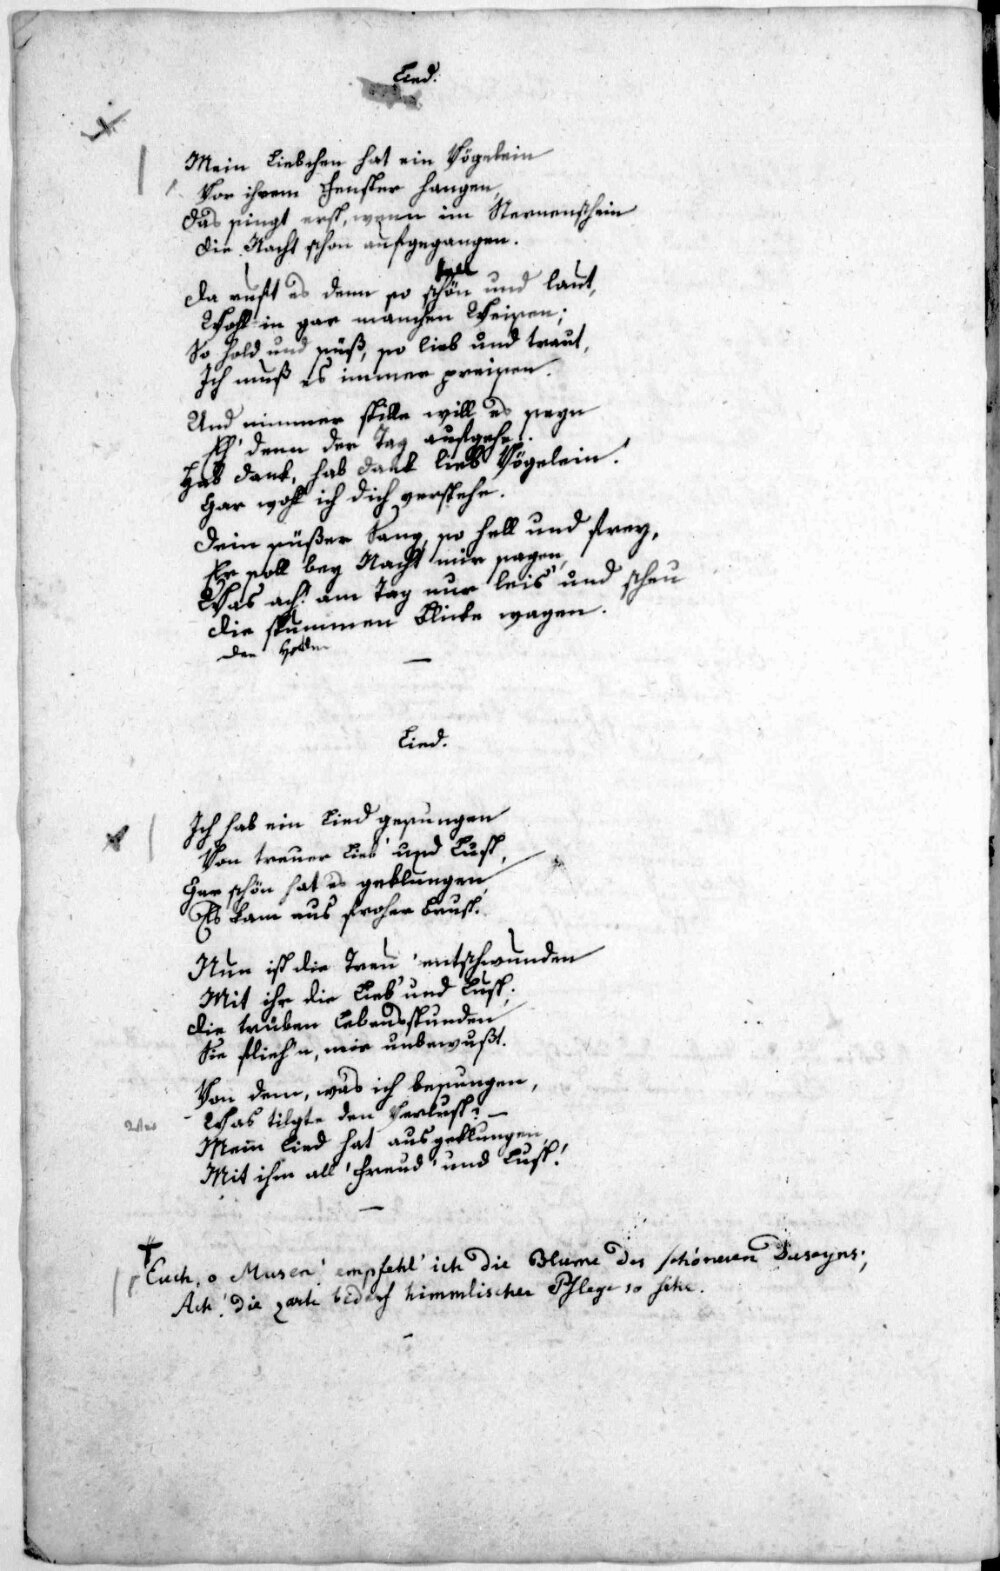 Lied.
Mein Liebchen hat ein Vögelein
Vor ihrem Fenster hangen,
Das singt erst, wenn im Sternenschein
Die Nacht schon aufgegangen.
hell
Da ruft es denn so schön und laut,
Wohl in gar manchen Weisen;
So hold und süß, so lieb und traut,
Ich muß es immer preisen.
Und nimmer stille will es seyn
Eh' denn der Tag aufgehe.
Hab Dank, hab Dank lieb Vögelein!
Gar wohl ich dich verstehe.
Dein süßer Sang, so hell und frey,
Er soll bey Nacht mir sagen,
Was ach! am Tag nur leis' und scheu
Die stummen Blicke wagen.
Der Holden
Lied.
Ich hab ein Lied gesungen
Von treuer Lieb' und Lust,
Gar schön hat es geklungen,
Es kam aus froher Brust.
Nun ist die Treu' entschwunden
Mit ihr die Lieb' und Lust;
Die trüben Lebensstunden
Sie flieh'n, mir unbewußt.
Von dem, was ich besungen,
Was tilgte den Verlust? —
Mein Lied hat ausgeklungen,
Mit ihm all' Freud' und Lust!
Euch, o Musen! empfehl' ich die Blume des schöneren Daseyns;
Ach! die zarte bedarf himmlischer Pflege so sehr.